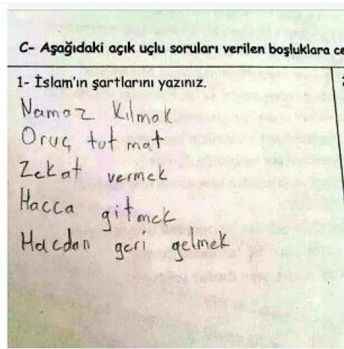 C- Aşağıdaki açık uçlu soruları verilen boşluklara ce
1- İslam'ın şartlarını yazınız.
Namaz Kılmak
Oruç tut mat
Zekat vermek
Hacca gitmek
Hacdan geri gelmek